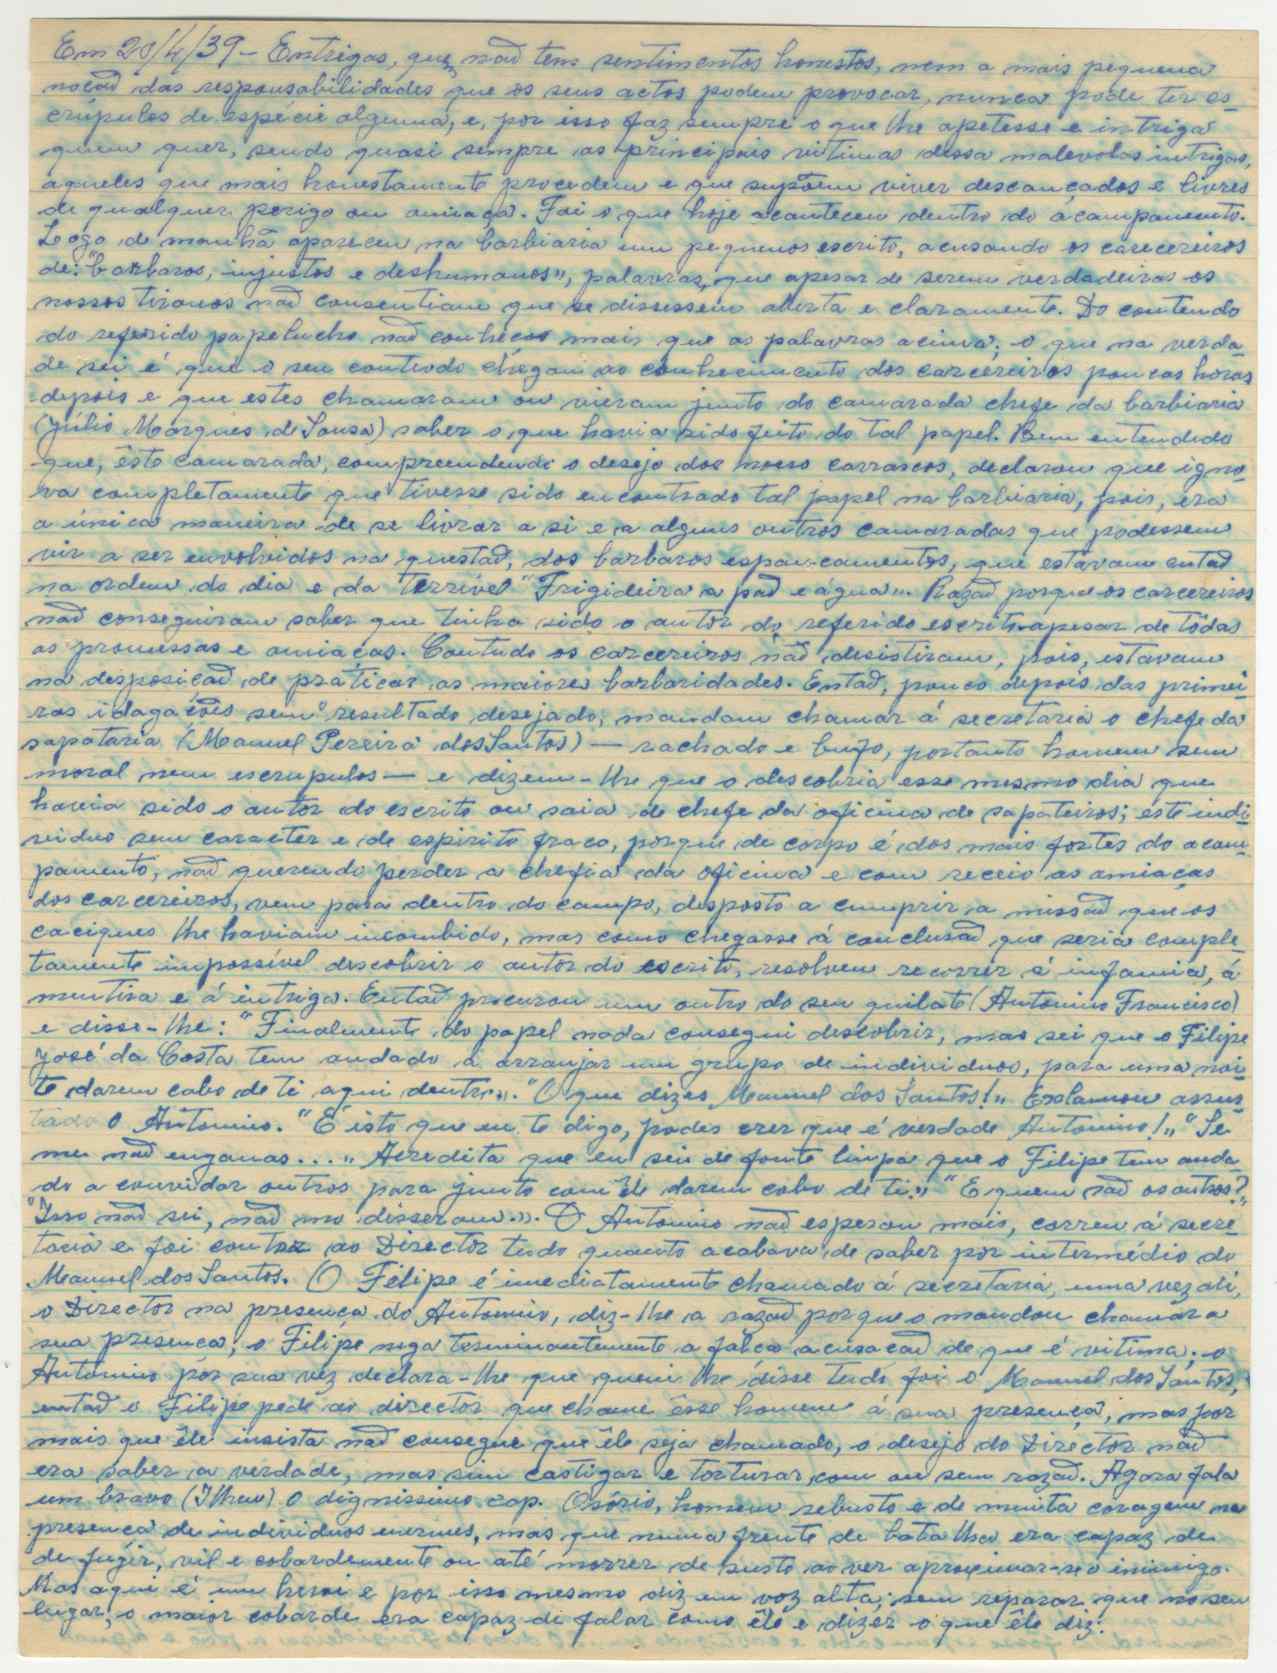 Em 20/4/39 - Entrigas, quem não tem sentimentos honestos, nem a mais pequena
noção das responsabilidades que os seus actos podem provocar, nunca pode ter es-
crúpulos de espécie alguma, e, por isso faz sempre o que lhe apetesse e intriga
quem quer, sendo quasi sempre as principais vitimas dessa malevolas intrigas,
aqueles que mais honestamente procedem e que supõem viver descançados e livres
de qualquer perigo ou amiaça. Foi o que hoje acanteceu dentro do ácampamento.
Logo de manhã apareceu na barbiaria um pequenos escrito, acusando os carecereiros
de: "barbaros, injustos e deshumanos", palavras, que apesar de serem verdadeiras os
nossos tiranos não consentiam que se dissessem aberta e claramente. Do contendo
do referido papelucho não conheço mais que as palavras acima; o que na verda-
de sei é que o seu contiudo chegou ao conhecimento dos carcereiros poucas horas
depois e que estes chamaram ou vieram junto do camarada chefe da barbiaria
(Júlio Marques de Sousa) saber o que havia sido feito do tal papel. Bem entendido
que, êste camarada, compreendendo o desejo dos nosso carrascos, declarou que igno-
va completamente que tivesse sido encontrado tal papel na barbiaria, pois, era
a única maneira de se livrar a si e a alguns outros camaradas que podessem
vir a ser envolvidos na questão, dos barbaros espancamentos, que estavam então
na ordem do dia e da terrível "Frigideira a pão e água". Razão porque os carcereiros
não conseguiram saber que tinha sido o autor do referido escrito apesar de tôdas
as promessas e amiaças. Contudo os carcereiros não desistiram, pois, estavam
na desposição de práticar as maiores barbaridades. Então, pouco depois das primei-
ras idagações sem o resultado desejado, mandam chamar á secretaria o chefe da
sapataria (Manuel Pereira dos Santos) — rachado e bufo, portanto homem sem
moral nem escrupulos — e dizem-lhe que o descobria esse mesmo dia que
havia sido o autor do escrito ou saia de chefe da oficina de sapateiros; êste indi-
viduo sem caracter e de espirito fraco, porque de corpo é dos mais fortes do acam-
pamento, não querendo perder a chefia da oficina e com receio as amiaças
dos carcereiros, vem para dentro do campo, desposto a cumprir a missão que os
caciques lhe haviam incombido, mas como chegasse á conclusão que seria comple-
tamente impossível descobrir o autor do escrito, resolveu recorrer á infamia, á
mentira e á intriga. Então procurou um outro do seu quilate (Antonino Francisco)
e disse-lhe: "Finalmente do papel nada consegui descobrir, mas sei que o Filipe
José da Costa tem andado a arranjar um grupo de individuos, para uma noi-
te darem cabo de ti aqui dentro". "O que dizes Manuel dos Santos!" Exclamou assus-
tado o Antonino. "É isto que eu te digo, podes crer que é verdade Antonino!" "Se
me não enganas..." Acredita que eu sei de fonte limpa que o Filipe tem anda-
do a convidar outros para junto com êle darem cabo de ti." "E quem são os outros?"
"Isso não sei, não mo disseram." O Antonino não esperou mais, correu á secre-
taria e foi contar ao Director tudo quanto acabava de saber por intermédio do
Manuel dos Santos. O Filipe é imediatamente chamado á secretaria, uma vez ali,
o Director na presença do Antonino, diz-lhe a razão porque o mandou chamar a
sua presença; o Filipe nega terminantemente a falça acusação de que é vitima; o
Antonino por sua vez declara-lhe que quem lhe disse tudo foi o Manuel dos Santos,
então o Filipe pede ao director que chame êsse homem á sua presença, mas por
mais que êle insista não consegue que êle seja chamado, o desejo do Director não
era saber a verdade, mas sim castigar e torturar, com ou sem razão. Agora fala
um bravo O dignissimo cap. Osório, homem rebusto e de muita coragem na
presença de individuos enermes, mas que numa frente de batalha era capaz de
de fugir, vil e cobardemente ou até morrer de susto ao ver aproximar-se o inimigo.
Mas aqui é um heroi e por isso mesmo diz em voz alta, sem reparar que no seu
lugar, o maior cobarde era capaz de falar como êle e dizer o que êle diz: